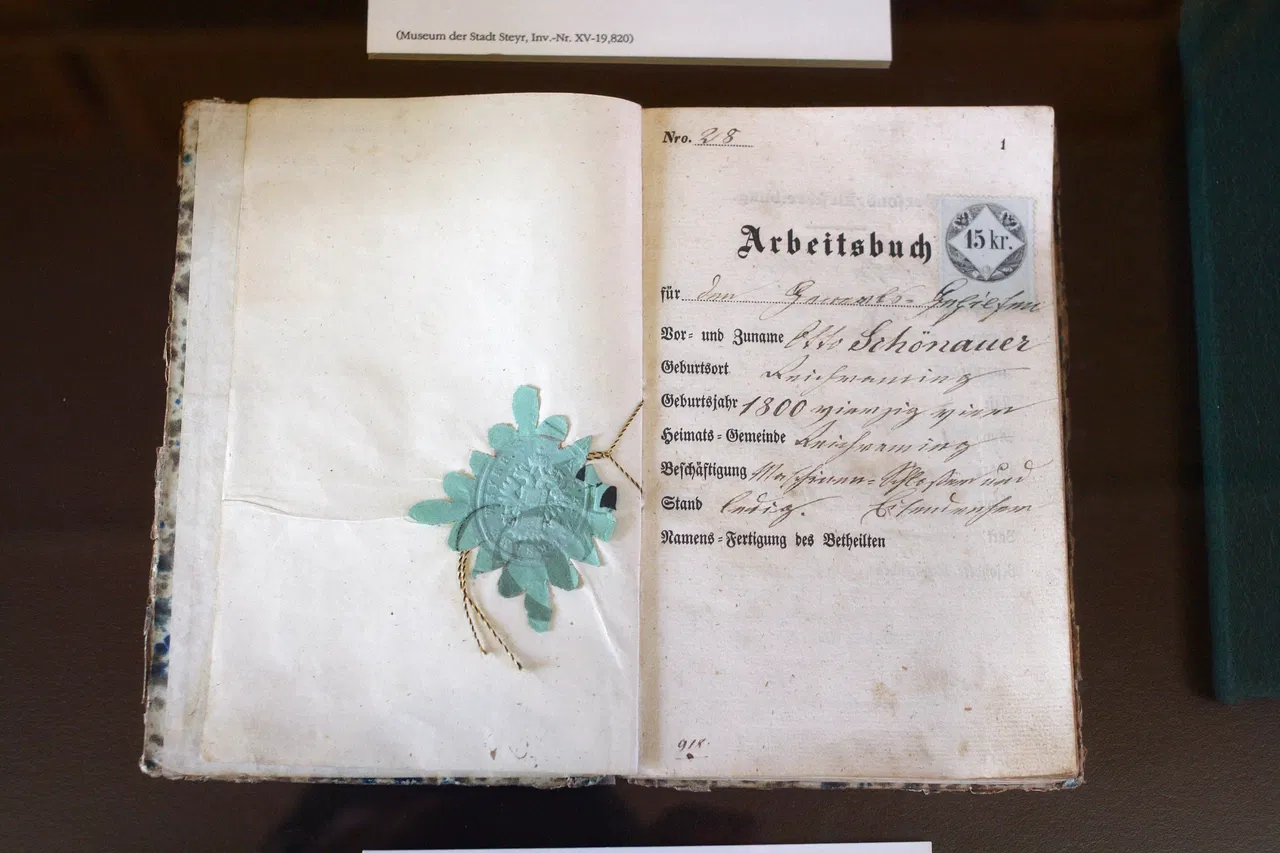 (Museum der Stadt Steyr, Inv.-Nr. XV-19,820)
Nro. 28
1
Arbeitsbuch
15 kr.
für den Gewerbs-Gehilfen
Vor- und Zuname Otto Schönauer
Geburtsort Reichraming
Geburtsjahr 1800 vierzig vier
Heimats-Gemeinde Reichraming
Beschäftigung Maschinen-Schlosser und
Stand ledig. Eisendreher
Namens-Fertigung des Betheilten